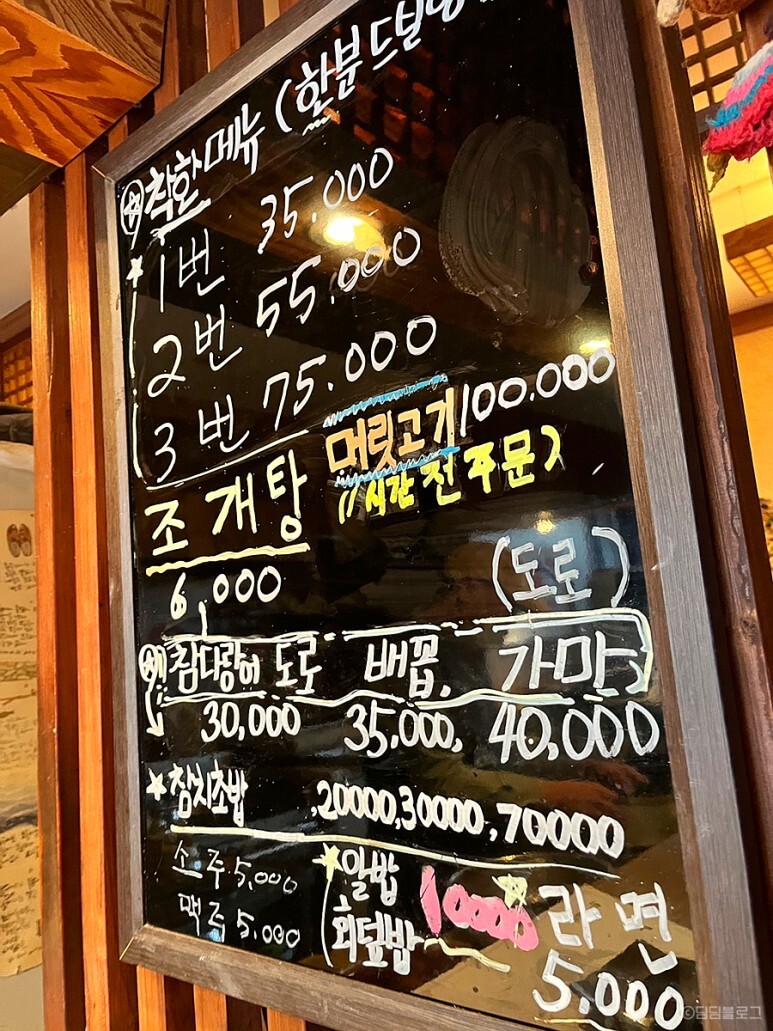 착한메뉴 (한분 드릴
1번 35.000
2번 55.000
3번 75.000
머릿고기 100.000
시간 전 주문)
조개탕
6,000
(도로)
참다랑어 도로 배꼽. 가마
30,000 35,000, 40,000
참치초밥 20000, 30000, 70000
소주 5,000
맥주 5,000
알밥
회덮밥
10000
라면
5,000
©딤딤블로그